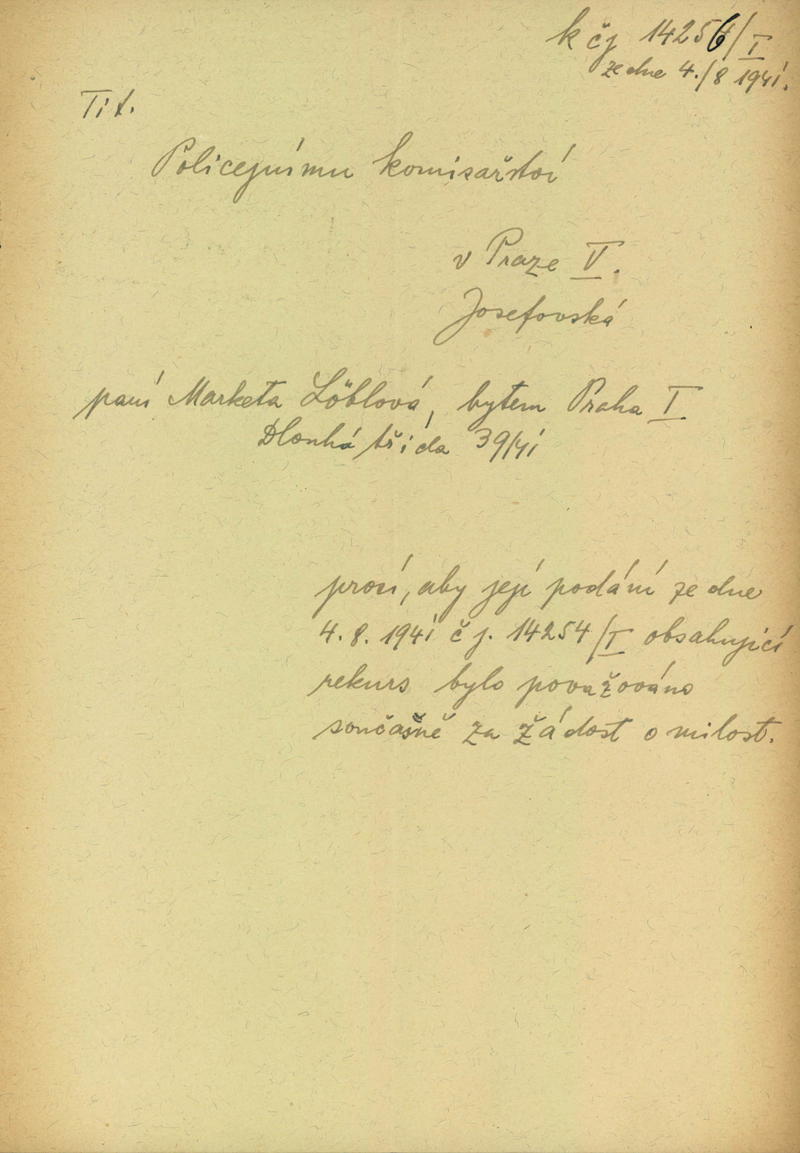 k čj 14256/I
ze dne 4./8 1941.
Tit.
Policejnímu komisařství
v Praze V.
Josefovská
paní Marketa Löblová, bytem Praha I
Dlouhá třída 39/41
prosí, aby její podání ze dne
4. 8. 1941 č j. 14254/I obsahující
rekurs bylo považováno
současně za žádost o milost.